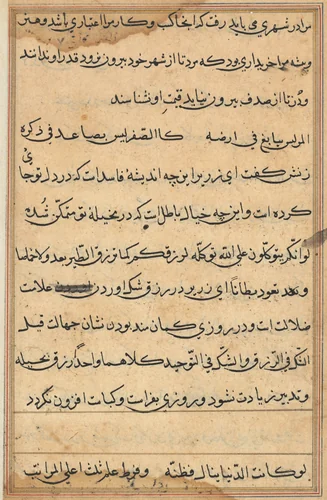 مرا در شهری می باید رفت که انجا کسب و کار مرا اعتباری باشد و هنر
و پیشه مرا خریداری بود که مرد تا از شهر خود بیرون نرود قدر او ندانند
و در تا از صدف بیرون نیاید قیمت او نشناسند
المر لیس ببالغ فی ارضه کالصقر لیس بصاعد فی ذکره
زنش گفت ای زریر این چه اندیشهٔ فاسد است که در دل تو جای
کرده است و این چه خیال باطل است که در مخیلهٔ تو متمکن شده
لو انکم یتوکلون علی الله توکله لرزقکم کما ترزق الطیر بغدو ولا خماصا
وتعود بطانا ای زریر در رزق شک اوردن علامت
ضلالت است و در روزی کمان مند بودن نشان جهالت قیل
الشک فی الرزق والشک فی التوحید کلاهما واحد رزق بحیله
و تدبیر زیادت نشود و روزی بفراست و کیاست افزون نگردد
لو کانت الدنیا ینال فطنه وفرط علم نلت اعلی المراتب